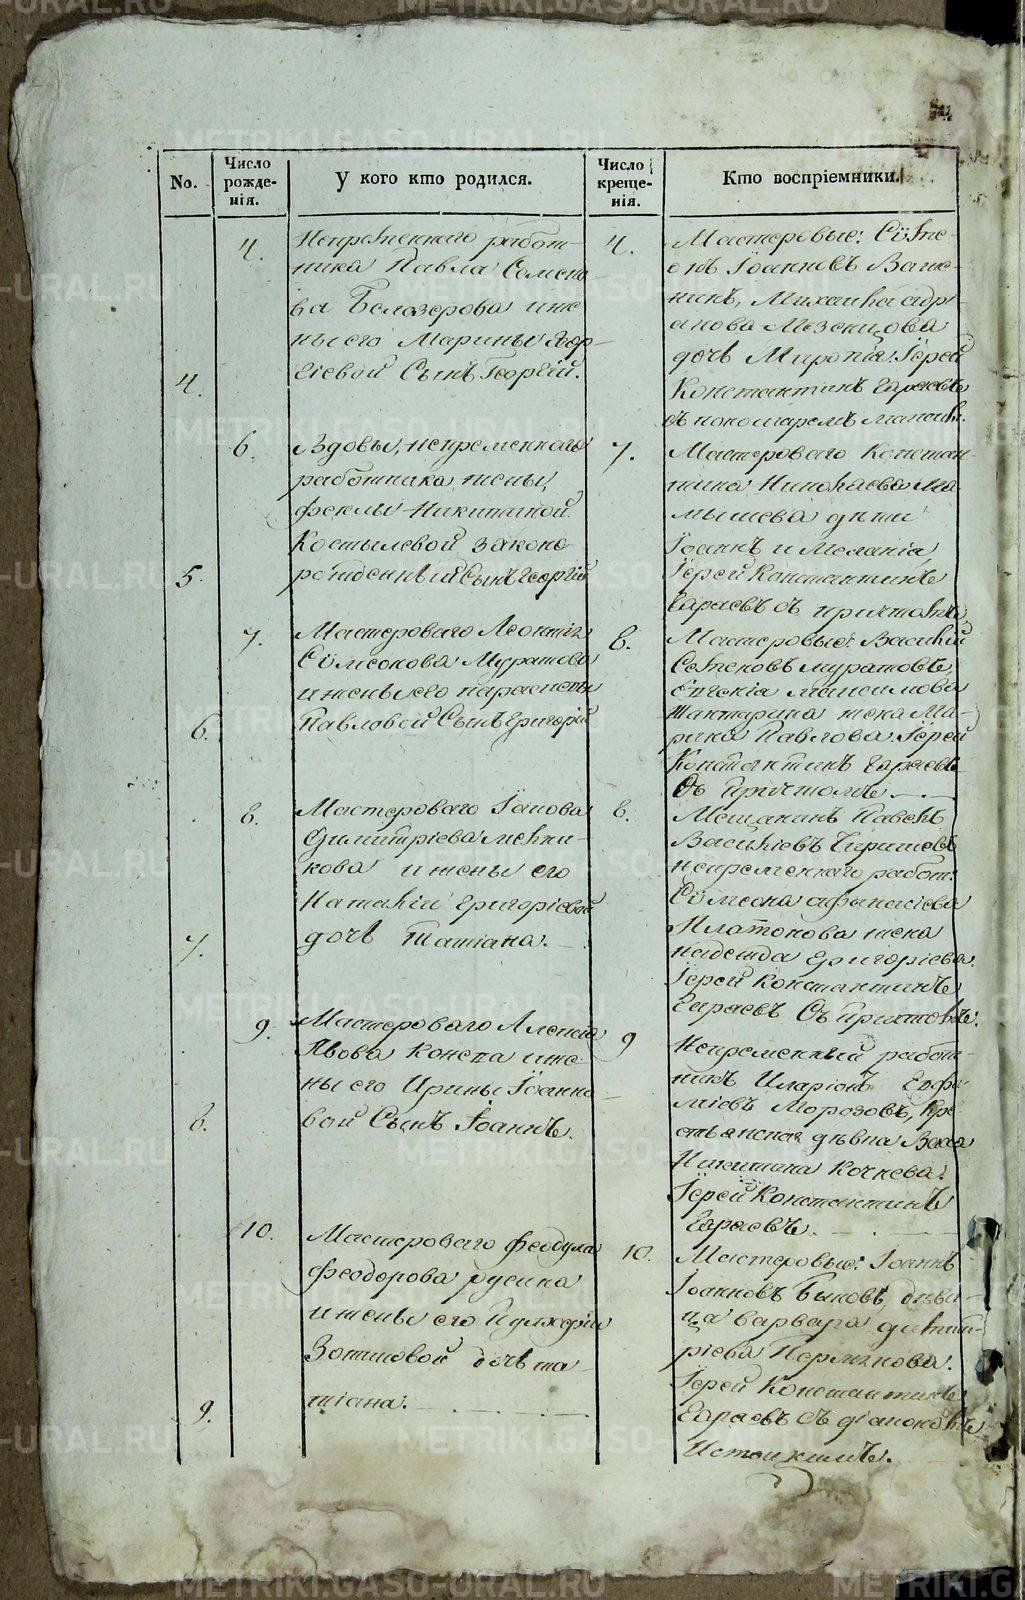 No.
Число рожде-нія.
У кого кто родился.
Число креще-нія.
Кто воспріемники.
4.
4.
Непременнаго работ-
ника Павла Семено
ва Белозерова и же
ны его Марины Геор-
гіевой Сынъ Георгій.
4.
Мастеровые: Сѵме-
онъ Іоанновъ
Михаила
дочь Миропія: Іерей
Константинъ
съ пономаремъ
5.
6.
Вдовы, непременнаго
работника жены,
феклы Никитиной
Костылевой законо
рожденный Сынъ Георгій
7.
Мастероваго Констан
тина Николаева Ма
мышева дѣти
Іоаннъ и Меланія,
Іерей Константинъ
съ причтомъ
6.
7.
Мастероваго Леонтія
Сѵмеонова Муратова
и жены его параскевы
Павловой Сынъ Григорій
8.
Мастеровые: Василій
Муратовъ
Евгенія максимова
жена Ма-
рина Павлова Іерей
Константинъ
Съ Причтомъ
7.
8.
Мастероваго Іакова
Димитріева мельни-
кова и жены его
Наталіи Григоріевой
дочь Татіана.
8.
Мещанинъ Павелъ
Васильевъ
непременнаго работ:
Сѵмеона афанасіева
Платонова жена
надежда Григоріева.
Іерей Константинъ
Съ Причтомъ.
8.
9.
Мастероваго Алексѣя
Львова и же
ны его Ирины Іоанно
вой Сынъ Іоаннъ.
9
Непременный работ-
никъ Иларіонъ Евфи
міевъ Морозовъ, Кре
стьянская дѣвка Васса
Никитина Кочнева.
Іерей Константинъ
9.
10.
Мастероваго феодула
феодорова русина
и жены его
Зотиковой дочь та
тіана.
10.
Мастеровые: Іоаннъ
Іоанновъ Быковъ, дѣви-
ца варвара димит-
ріева Пермякова.
Іерей Константинъ
съ діакономъ
METRIKI.GASO-URAL.RU